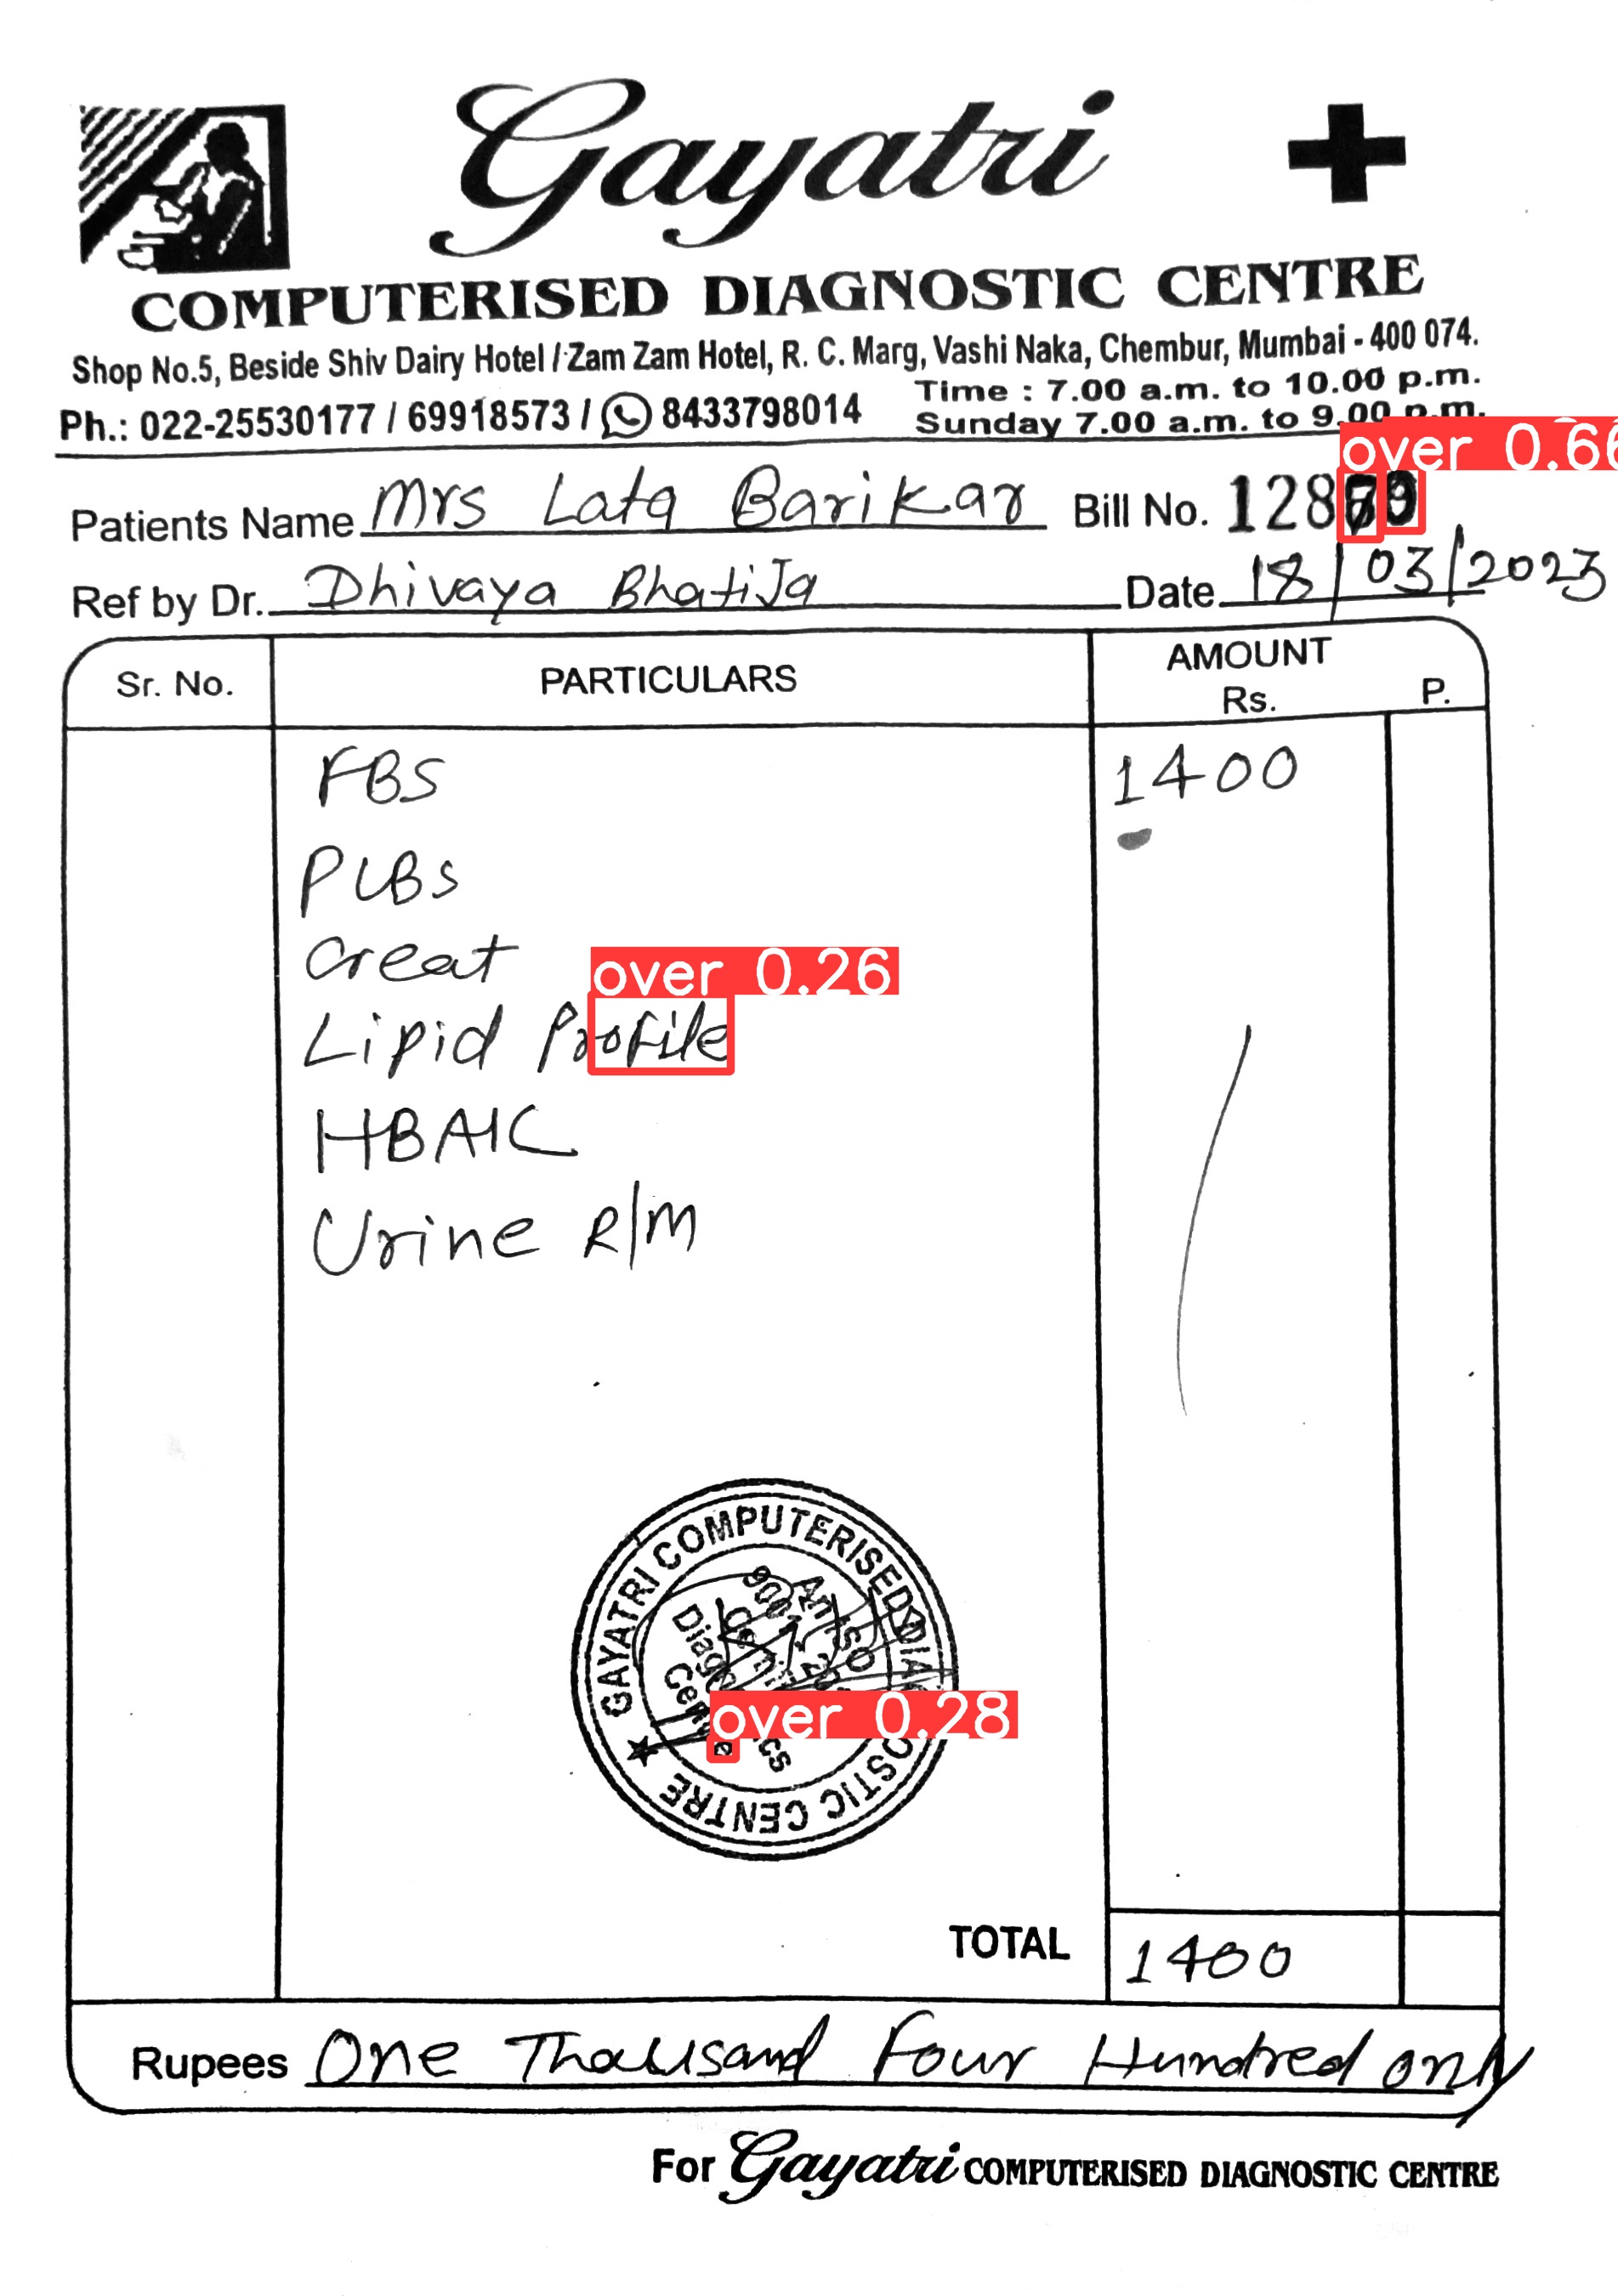 Gayatri
COMPUTERISED DIAGNOSTIC CENTRE
Shop No.5, Beside Shiv Dairy Hotel / Zam Zam Hotel, R. C. Marg, Vashi Naka, Chembur, Mumbai - 400 074.
Ph.: 022-25530177 / 69918573 / 8433798014 Time : 7.00 a.m. to 10.00 p.m.
Sunday 7.00 a.m. to 9.00 p.m.
over 0.66
Patients Name Mrs Lata Barikar Bill No.
Ref by Dr. Dhivaya Bhatija Date 18/03/2023
Sr. No. PARTICULARS AMOUNT
Rs. P.
FBS 1400
PLBS
Creat
over 0.26
Lipid Profile
HBA1C
Urine R/M
GAYATRI COMPUTERISED DIAGNOSTIC CENTRE
over 0.28
TOTAL 1400
Rupees One Thousand Four Hundred only
For Gayatri COMPUTERISED DIAGNOSTIC CENTRE